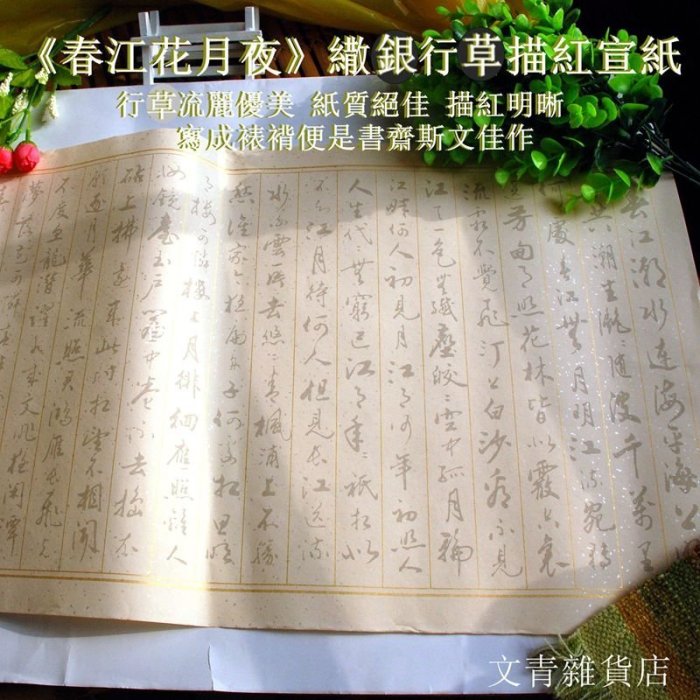 《春江花月夜》繖銀行草描紅宣紙
行草流麗優美 紙質絕佳 描紅明晰
寫成裱褙便是書齋斯文佳作
春江潮水連海平海上
共潮生灩灩隨波千萬里
何處春江無月明江流宛轉
芳甸月照花林皆似霰空裏
流霜不覺飛汀上白沙看不見
江天一色無纖塵皎皎空中孤月輪
江畔何人初見月江月何年初照人
人生代代無窮已江月年年祗相似
不知江月待何人但見長江送流
水白雲一片去悠悠青楓浦上不勝
愁誰家今夜扁舟子何處相思明
月樓可憐樓上月徘徊應照離人
妝鏡臺玉戶簾中卷不去擣衣
砧上拂還來此時相望不相聞
願逐月華流照君鴻雁長飛光
不度魚龍潛躍水成文昨夜閒潭
夢落花可憐春半
文青雜貨店